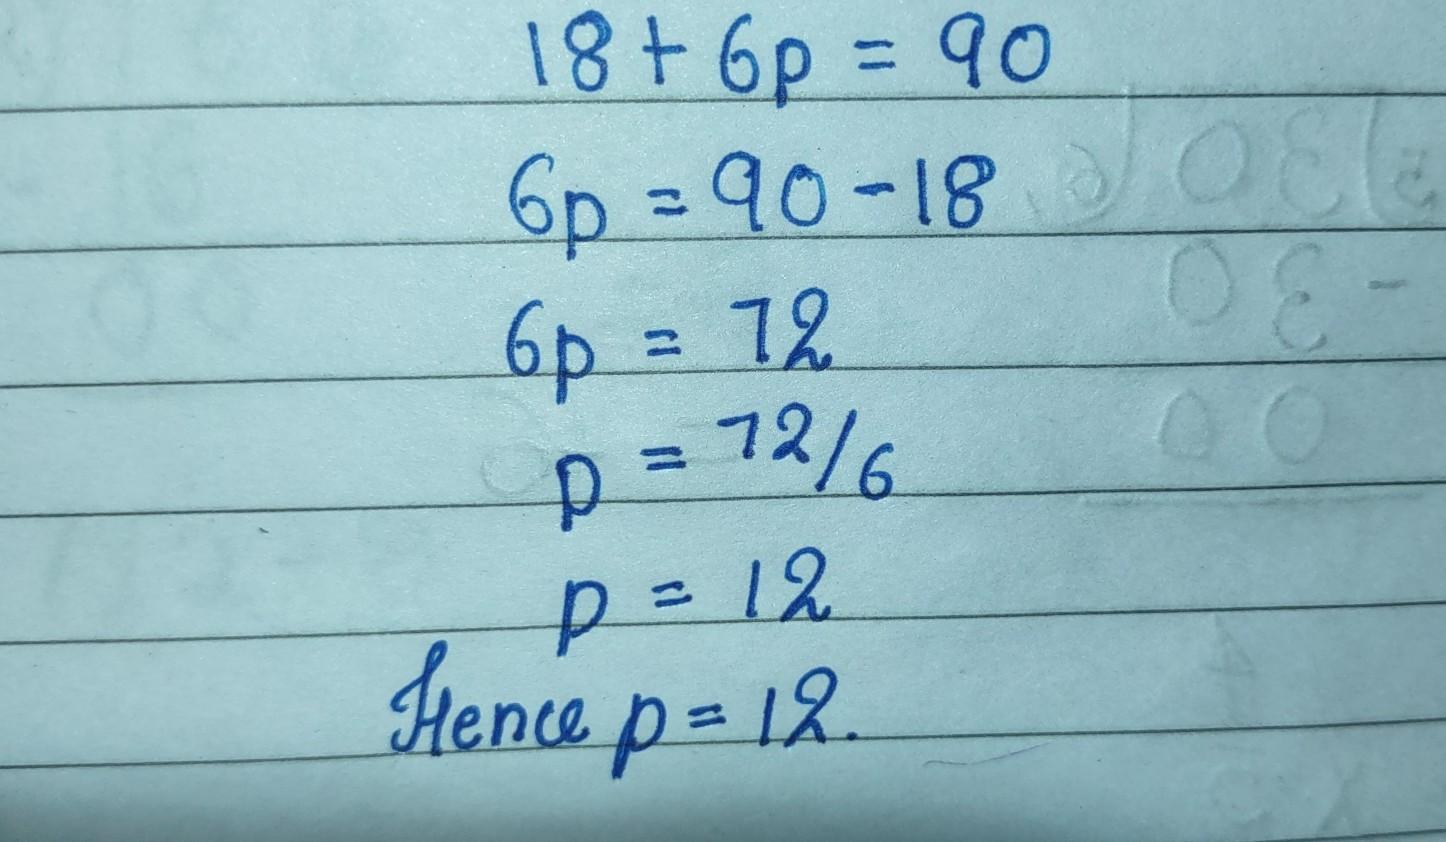 18 + 6p = 90
6p = 90 - 18
6p = 72
p = 72/6
p = 12
Hence p = 12.